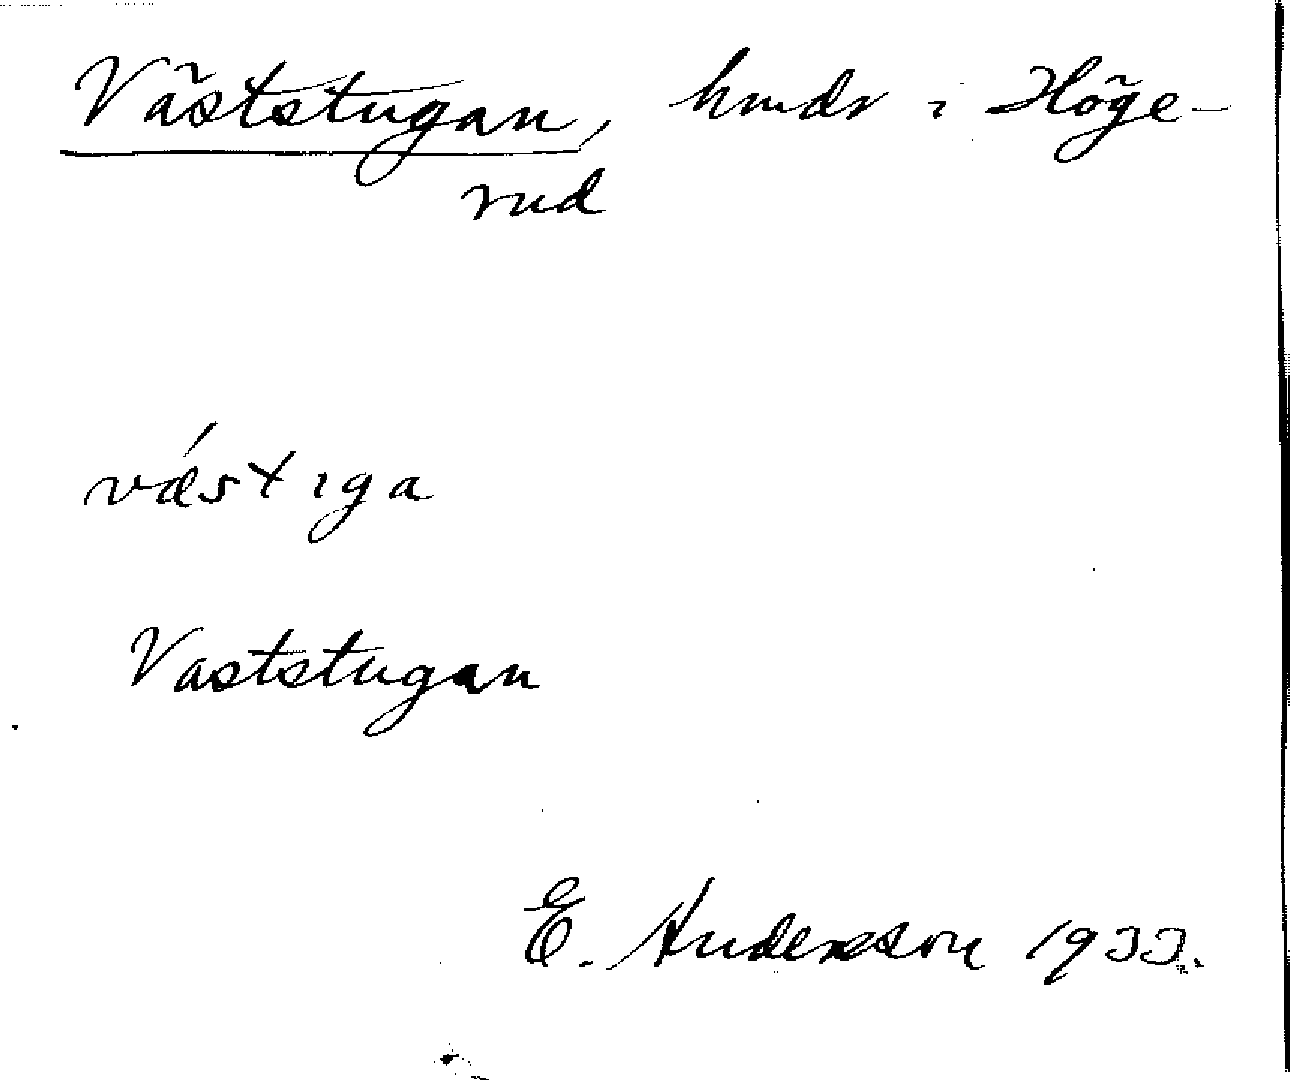 Väststugan, hmdr i Höge-
rud
vǽstıga
Vaststugan
E. Andersson 1933.